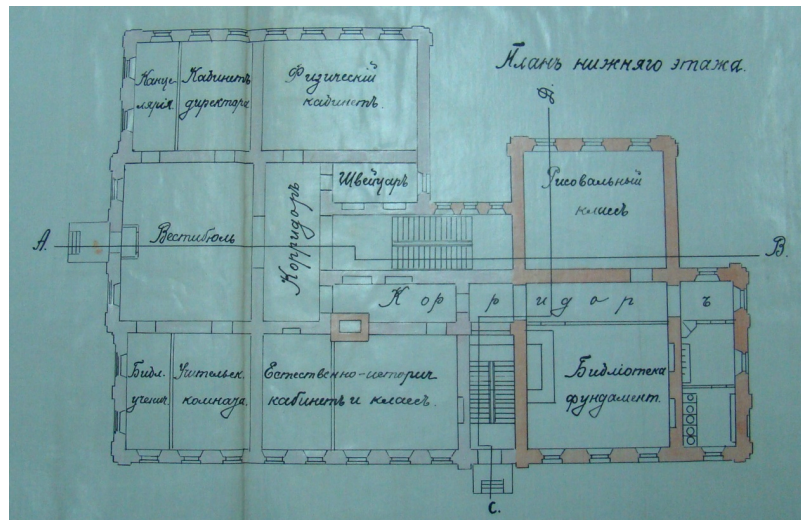 Планъ нижняго этажа.
Канце-
лярія.
Кабинетъ
директора
Физическій
кабинетъ.
Швейцаръ
Рисовальный
классъ
А.
Вестибюль
Корридоръ
В.
Корридоръ
Библ.
ученич.
Учительск.
комната.
Естественно-историч.
кабинетъ и классъ.
Библіотека
фундамент.
С.